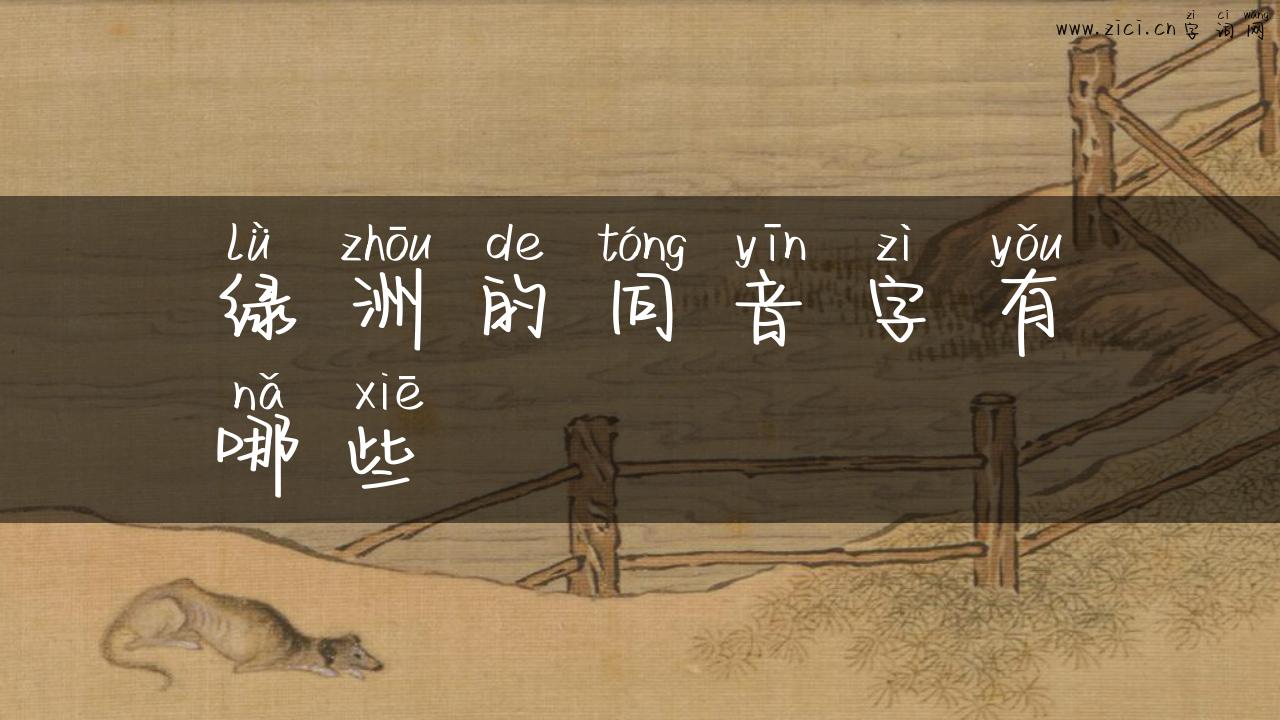 zì cí wǎng
www.zici.cn 字词网
lǜ zhōu de tóng yīn zì yǒu
绿洲的同音字有
nǎ xiē
哪些